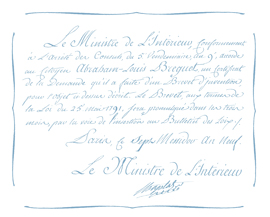 Le Ministre de l'Intérieur, Conformément
à l'Arrêté des Consuls, du 5 Vendémiaire an 9, accorde
au Citoyen Abraham-Louis Breguet, un Certificat
de la Demande qu'il a faite d'un Brevet d'invention
pour l'objet ci dessus décrit. Le Brevet, aux termes de
la Loi du 25 mai 1791, sera promulgué dans un Trimestre
par la voie de l'insertion au Bulletin des Lois.
Paris, Messidor An Neuf.
Le Ministre de l'Intérieur